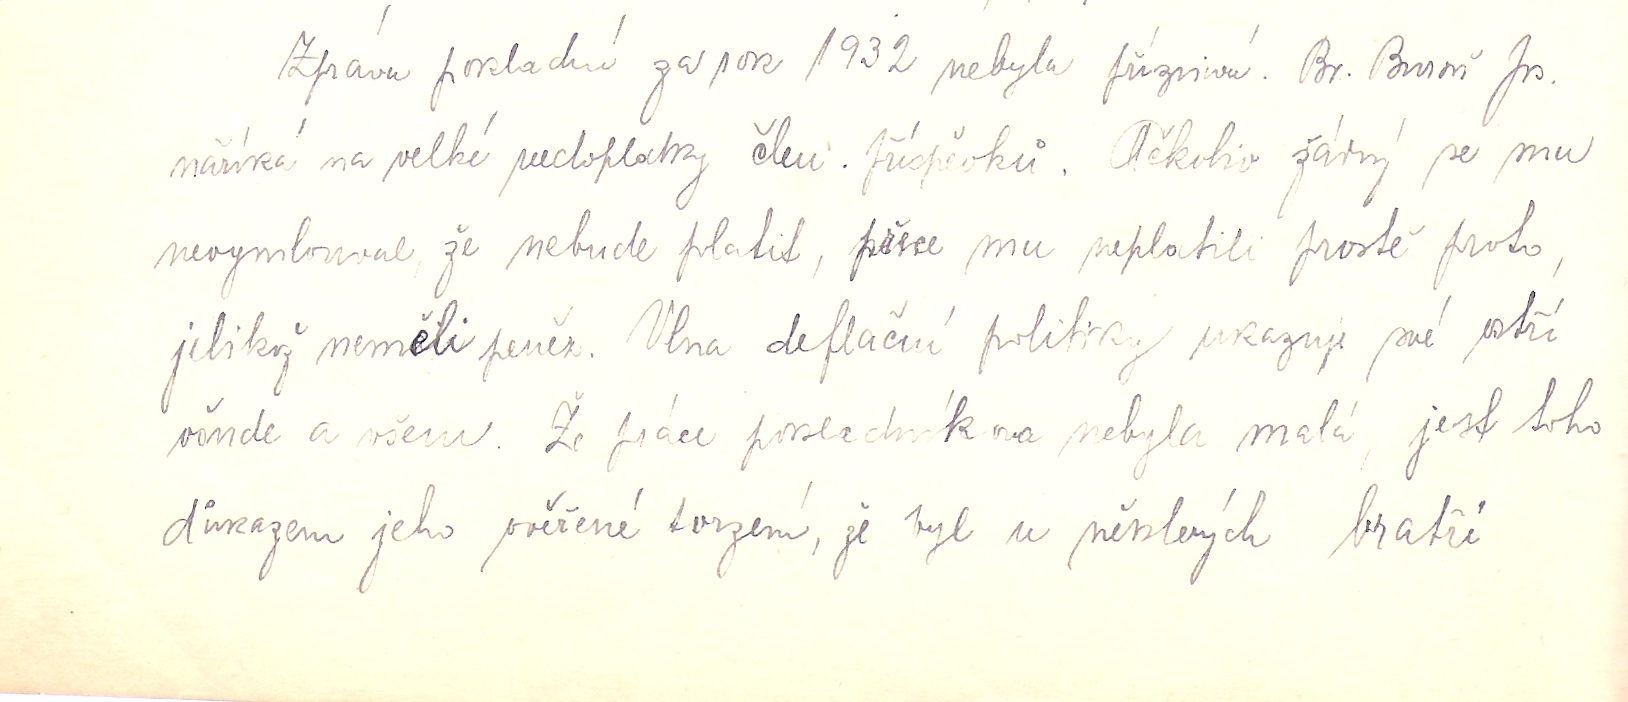 Zpráva pokladní za rok 1932 nebyla příznivá. Br. Bureš Jos.
naříká na velké nedoplatky člen. příspěvků. Ačkoliv žádný se mu
nevymlouval, že nebude platit, přece mu neplatili prostě proto,
jelikož neměli peněz. Vlna deflační politiky ukazuje své ostří
všude a všem. Že práce pokladníkova nebyla malá, jest toho
důkazem jeho ověřené tvrzení, že byl u některých bratří